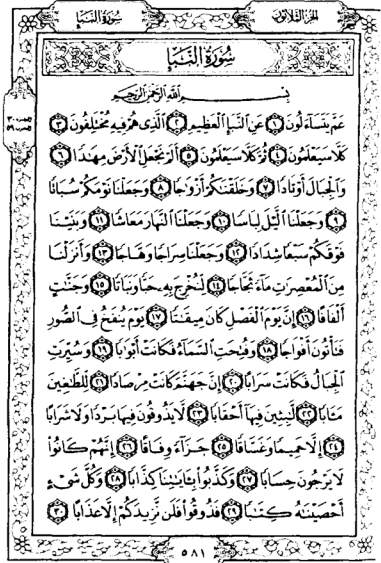 سُورَةُ النَّبَإِ الجُزْءُ الثَّلَاثُونَ
سُورَةُ النَّبَإِ
بِسْمِ اللَّهِ الرَّحْمَٰنِ الرَّحِيمِ
عَمَّ يَتَسَآءَلُونَ ١ عَنِ النَّبَإِ الْعَظِيمِ ٢ الَّذِى هُمْ فِيهِ مُخْتَلِفُونَ ٣
كَلَّا سَيَعْلَمُونَ ٤ ثُمَّ كَلَّا سَيَعْلَمُونَ ٥ أَلَمْ نَجْعَلِ الْأَرْضَ مِهَٰدًا ٦
وَالْجِبَالَ أَوْتَادًا ٧ وَخَلَقْنَٰكُمْ أَزْوَٰجًا ٨ وَجَعَلْنَا نَوْمَكُمْ سُبَاتًا
٩ وَجَعَلْنَا الَّيْلَ لِبَاسًا ١٠ وَجَعَلْنَا النَّهَارَ مَعَاشًا ١١ وَبَنَيْنَا
فَوْقَكُمْ سَبْعًا شِدَادًا ١٢ وَجَعَلْنَا سِرَاجًا وَهَّاجًا ١٣ وَأَنزَلْنَا
مِنَ الْمُعْصِرَٰتِ مَآءً ثَجَّاجًا ١٤ لِّنُخْرِجَ بِهِۦ حَبًّا وَنَبَاتًا ١٥ وَجَنَّٰتٍ
أَلْفَافًا ١٦ إِنَّ يَوْمَ الْفَصْلِ كَانَ مِيقَٰتًا ١٧ يَوْمَ يُنفَخُ فِى الصُّورِ
فَتَأْتُونَ أَفْوَاجًا ١٨ وَفُتِحَتِ السَّمَآءُ فَكَانَتْ أَبْوَٰبًا ١٩ وَسُيِّرَتِ
الْجِبَالُ فَكَانَتْ سَرَابًا ٢٠ إِنَّ جَهَنَّمَ كَانَتْ مِرْصَادًا ٢١ لِّلطَّٰغِينَ
مَـَٔابًا ٢٢ لَّٰبِثِينَ فِيهَآ أَحْقَابًا ٢٣ لَّا يَذُوقُونَ فِيهَا بَرْدًا وَلَا شَرَابًا
٢٤ إِلَّا حَمِيمًا وَغَسَّاقًا ٢٥ جَزَآءً وِفَاقًا ٢٦ إِنَّهُمْ كَانُوا۟
لَا يَرْجُونَ حِسَابًا ٢٧ وَكَذَّبُوا۟ بِـَٔايَٰتِنَا كِذَّابًا ٢٨ وَكُلَّ شَىْءٍ
أَحْصَيْنَٰهُ كِتَٰبًا ٢٩ فَذُوقُوا۟ فَلَن نَّزِيدَكُمْ إِلَّا عَذَابًا ٣٠
٥٨١